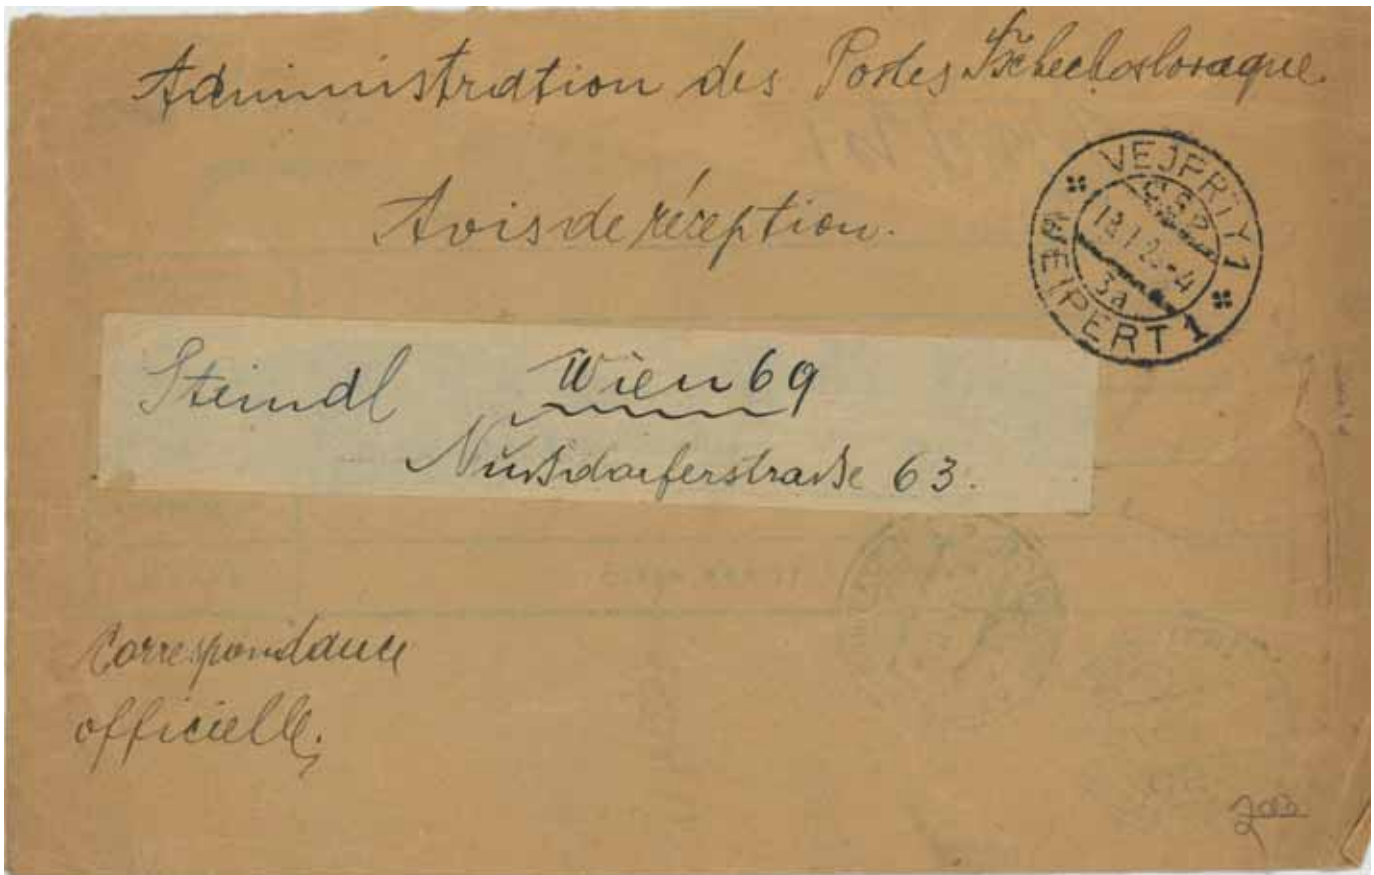 Administration des Postes Tschechoslovaque.
Avis de réception.
VEJPRTY 1
ČSP
3a
WEIPERT 1
Steindl Wien 69
Nußdorferstraße 63.
Correspondance
officielle.